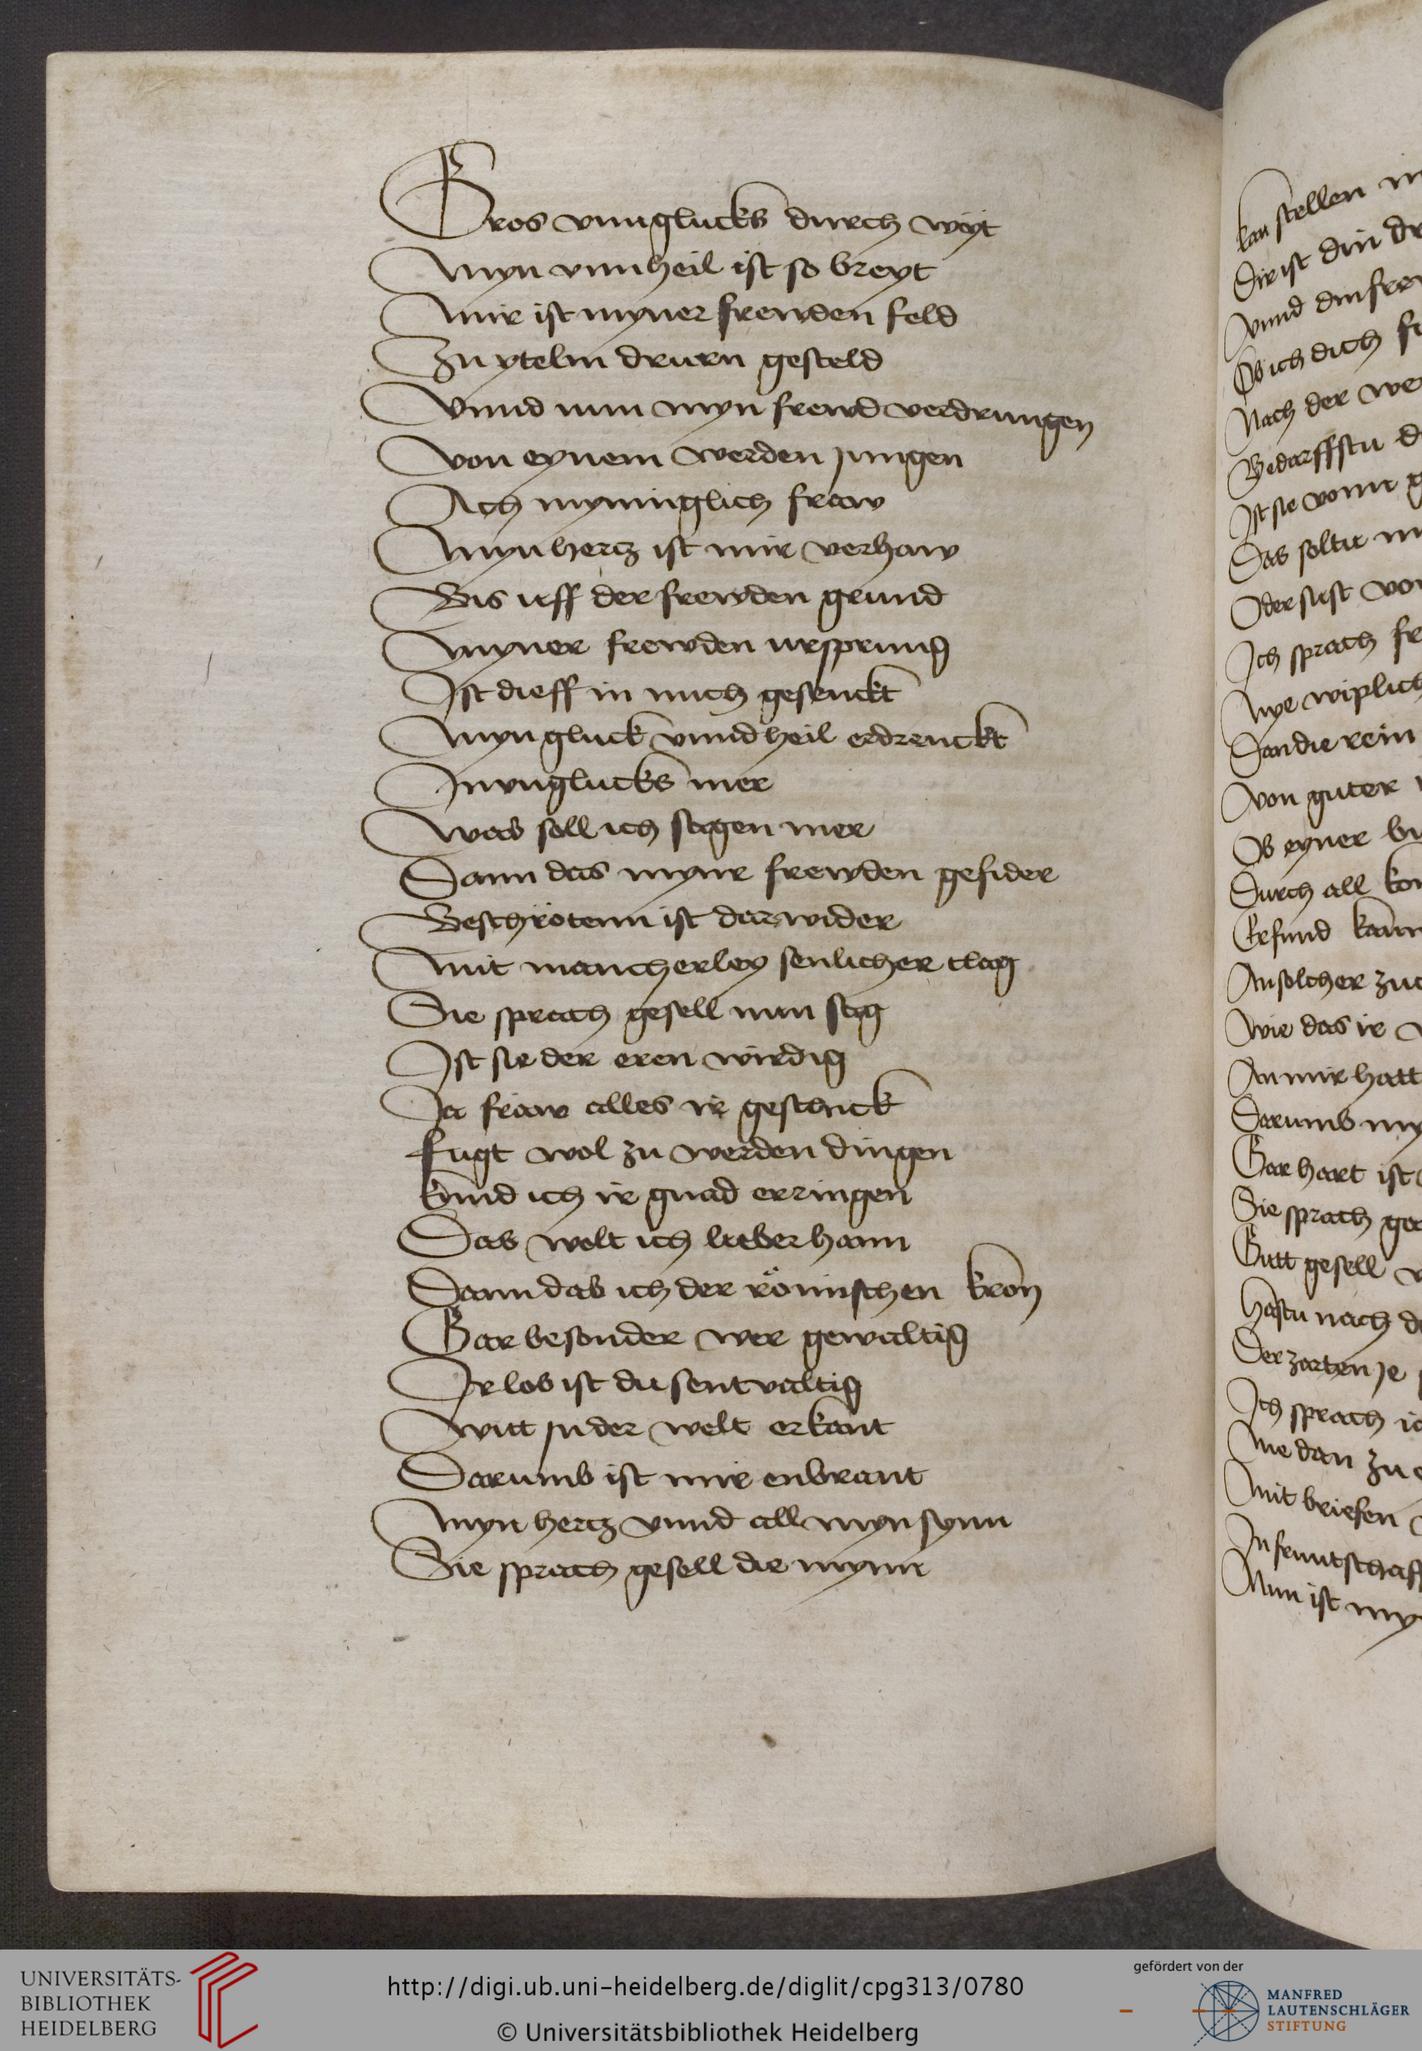 Gros vnnglucks durch wyt
Myn vnnheil ist so breyt
Mir ist myner frewden feld
Zu ytelm drurn gesteld
Vnnd nun myn frewd verdrungen
Von eynem werden jungen
Ach mynniglich fraw
Myn hertz ist mir verhaw
Bis uff der frewden grund
Myner frewden ursprung
Ist dieff in mich gesenckt
Myn gluck vnnd heil erdrenckt
In vnglucks mer
Was soll ich sagen mer
Dann das myne frewden gefider
Beschrotenn ist dar wider
Mit mancherley senlicher clag
Sie sprach gesell nun sag
Ist sie der eren wirdig
Ja fraw alles ir geschick
Fugt wol zu werden dingen
Kund ich ir gnad erringen
Das wolt ich lieber hann
Dann das ich der römischen kron
Gar besonder wer gewaltig
Ir lob ist dusentvaltig
Witt jn der welt erkant
Darumb ist mir enbrant
Myn hertz vnnd all myn synn
Sie sprach gesell die mynn
kan stellen
Dir ist din
Vnnd din
Ob ich dich
Nach der
Bedarffstu
Ist sie vonn
Das soltu
Oder sust
Ich sprach
Wye wiplich
Dan die rein
Von guter
Ob eyner
Durch all
Erfund kann
An solcher
Wie das ir
An mir hatt
Darumb
Gar hart ist
Sie sprach
Gutt gesell
Hastu nach
Der zarten je
Ich sprach
Wie dan zu
Mit briefen
In fruntschaff
Nun ist
UNIVERSITÄTS-
BIBLIOTHEK
HEIDELBERG
http://digi.ub.uni-heidelberg.de/diglit/cpg313/0780
© Universitätsbibliothek Heidelberg
gefördert von der
MANFRED
LAUTENSCHLÄGER
STIFTUNG